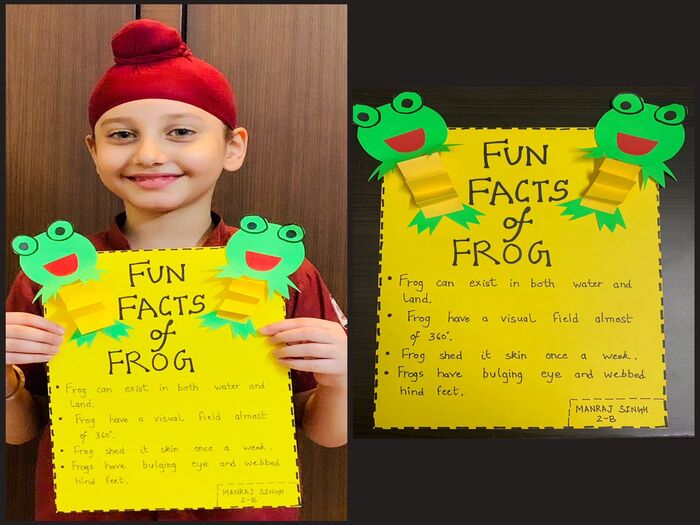 FUN
FACTS
of
FROG
• Frog can exist in both water and
Land.
• Frog have a visual field almost
of 360°.
• Frog shed it skin once a week.
• Frogs have bulging eye and webbed
hind feet.
MANRAJ SINGH
2-B
FUN
FACTS
of
FROG
• Frog can exist in both water and
Land.
• Frog have a visual field almost
of 360°.
• Frog shed it skin once a week.
• Frogs have bulging eye and webbed
hind feet.
MANRAJ SINGH
2-B